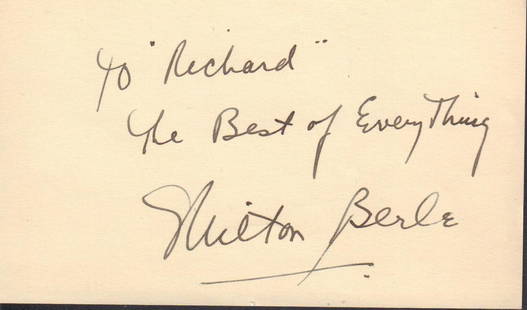 To "Richard"
The Best of Everything
Milton Berle